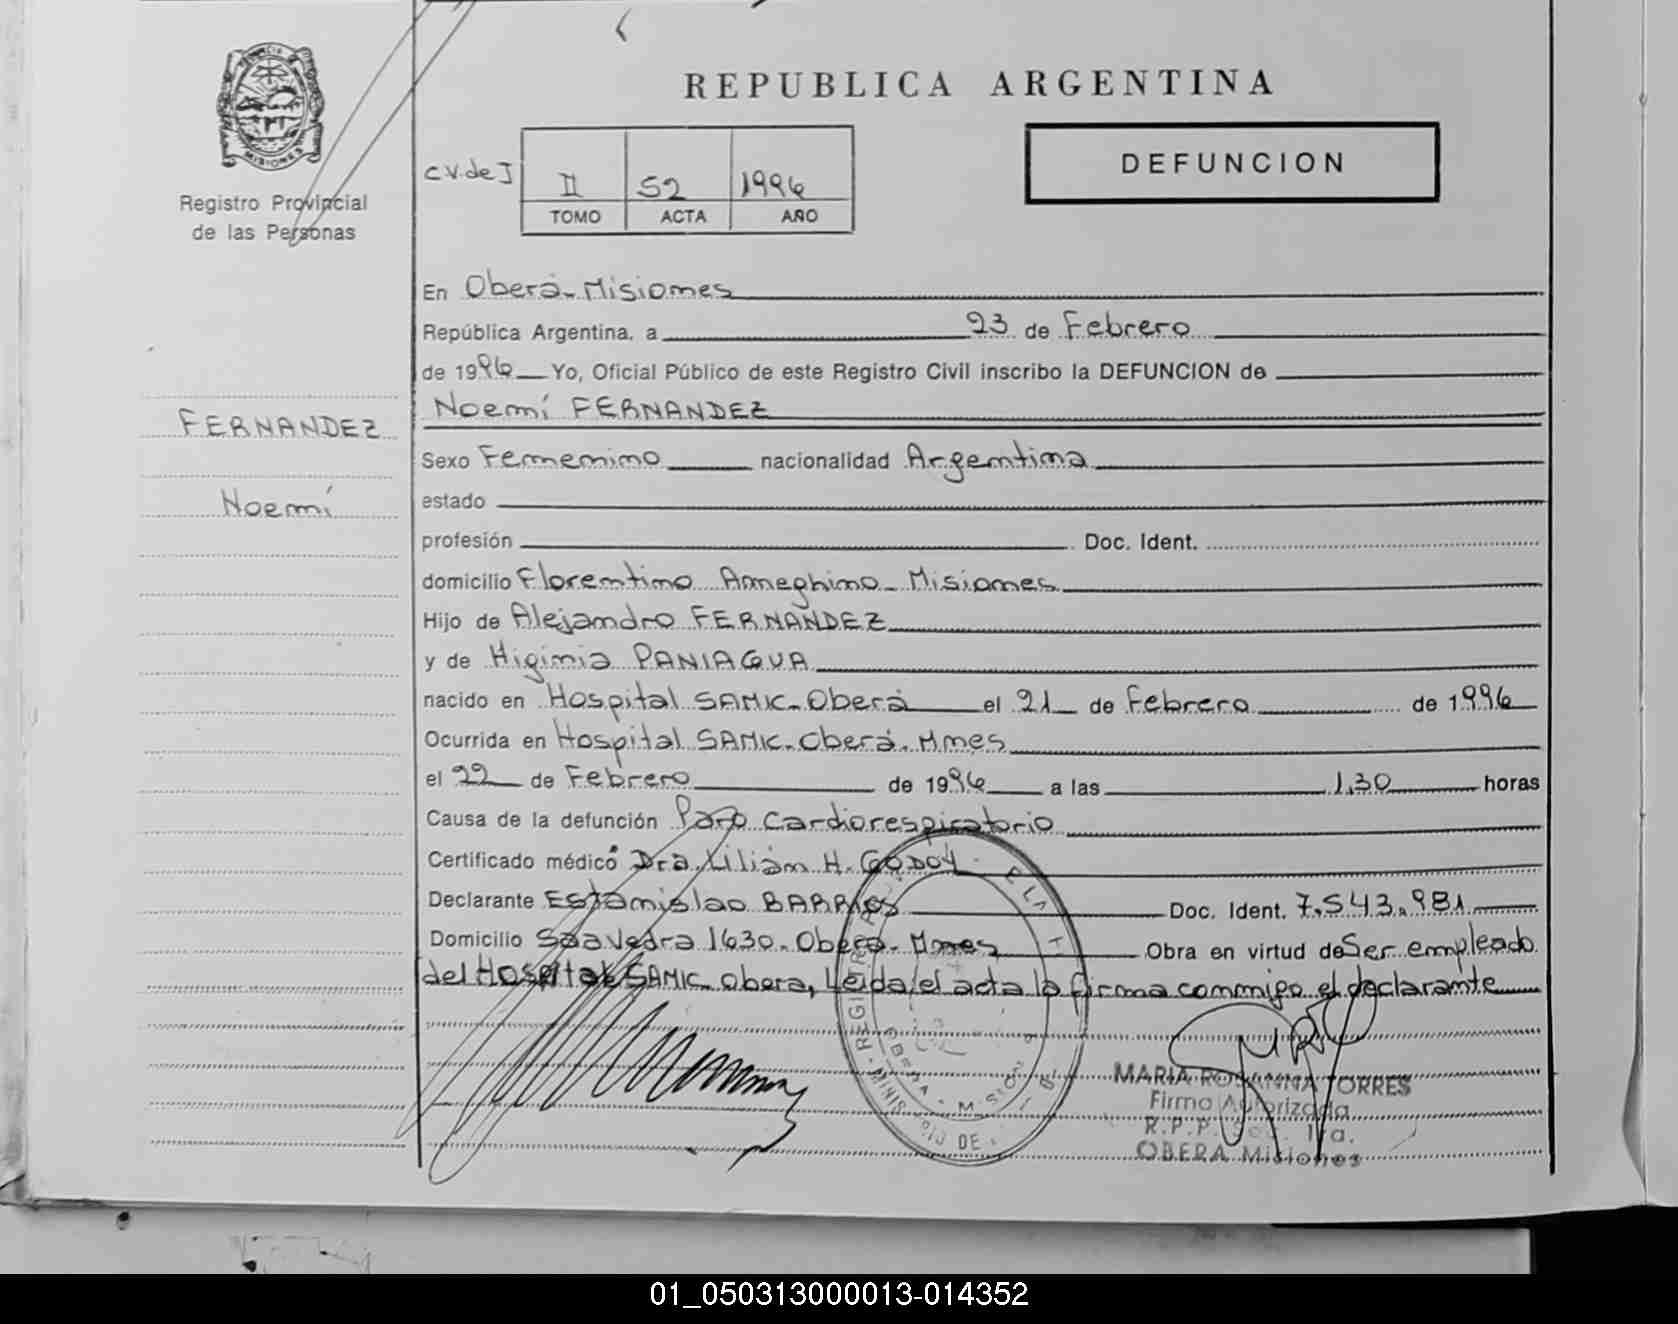 REPUBLICA ARGENTINA
PROVINCIA DE MISIONES
Registro Provincial
de las Personas
C.V. de I
II 52 1996
TOMO ACTA AÑO
DEFUNCION
En Oberá - Misiones
República Argentina, a 23 de Febrero
de 1996 Yo, Oficial Público de este Registro Civil inscribo la DEFUNCION de
Noemí FERNANDEZ
FERNANDEZ
Noemí
Sexo Femenino nacionalidad Argentina
estado
profesión Doc. Ident.
domicilio Florentino Ameghino - Misiones
Hijo de Alejandro FERNANDEZ
y de Higinia PANIAGUA
nacido en Hospital SAMIC - Oberá el 21 de Febrero de 1996
Ocurrida en Hospital SAMIC - Oberá - Mnes
el 22 de Febrero de 1996 a las 1,30 horas
Causa de la defunción Paro cardiorespiratorio
Certificado médico Dra. Lilian H. GODOY
Declarante Estanislao BARRIOS Doc. Ident. 7.543.981
Domicilio Saavedra 1630 - Oberá - Mnes Obra en virtud de Ser empleado
del Hospital SAMIC - Obera, Leida el acta la firma conmigo el declarante
MARIA ROSANNA TORRES
Firma Autorizada
R.P.P. Sec. 1ra.
OBERA Misiones
01_050313000013-014352